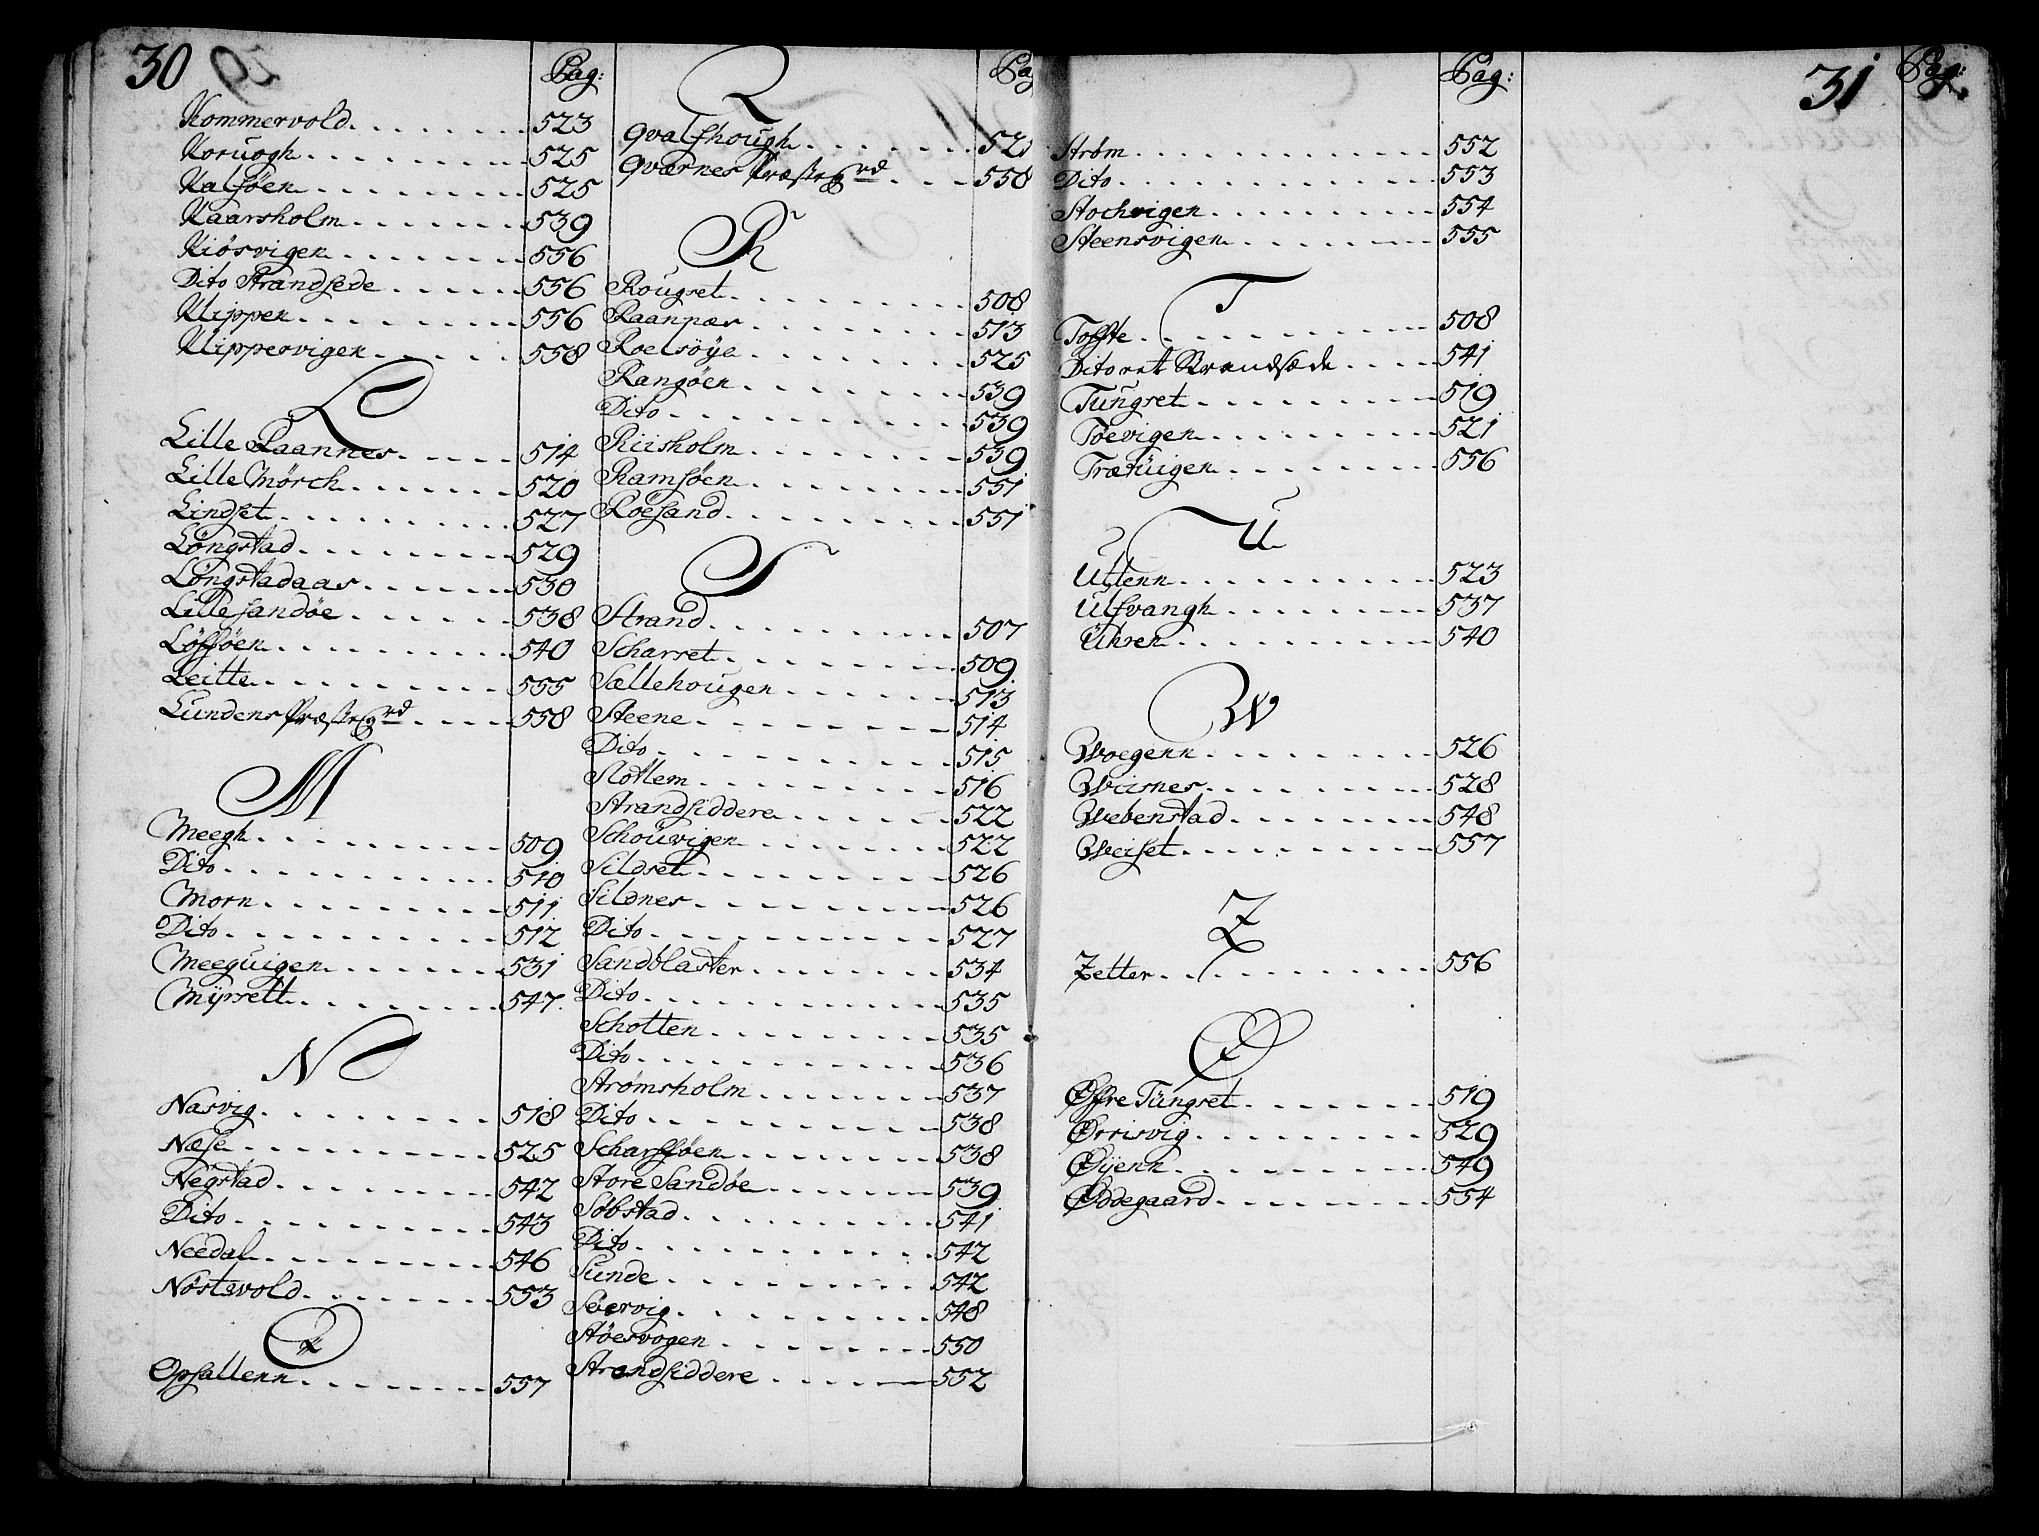 30
Pag:
Kommervold 523
Koruogh 525
Kalsøen 525
Kaarsholm 539
Kiøsvigen 556
Dito Strandsede 556
Klippen 556
Klippervigen 558
L
Lille Raannes 514
Lille Mörch 520
Lindset 527
Löngstad 529
Löngstadaas 530
Lille sandøe 538
Löfsøen 540
Leitte 555
Lundens Præste G rd 558
M
Meegh 509
Dito 510
Morn 511
Dito 512
Meeguigen 531
Myrsett 547
N
Nasvig 518
Næse 525
Negstad 542
Dito 543
Needal 546
Nöstevold 553
O
Opsallenn 557
Q
Qvalfhough
Qværnes Præste G rd 558
R
Rougset 508
Raannæs 513
Roelsöye 525
Rangöen 539
Dito 539
Riisholm 539
Ramsöen 551
Roesand 551
S
Strand 507
Scharset 509
Sællehougen 513
Steene 514
Dito 515
Slottem 516
Strandsiddere 522
Schouvigen 522
Sildset 526
Sildnes 526
Dito 527
Sandblaster 534
Dito 535
Schotten 535
Dito 536
Strømsholm 537
Dito 538
Scharfsøen 538
Store Sandøe 539
Söbstad 541
Dito 542
Sunde 542
Söervig 548
Stöesvogen 550
Strandsiddere 552
31
Pag:
Pag:
Strøm 552
Dito 553
Stochvigen 554
Steensvigen 555
T
Toffte 508
Dito ret Strandsæde 541
Tungset 519
Töevigen 521
Trætüigen 556
U
Utlenn 523
Ulfvangh 537
Uhren 540
W
Woegenn 526
Wiisnes 528
Webenstad 548
Weiset 557
Z
Zetter 556
Ø
Øfre Tüngset 519
Ørrisvig 529
Øyenn 549
Ødegaard 554